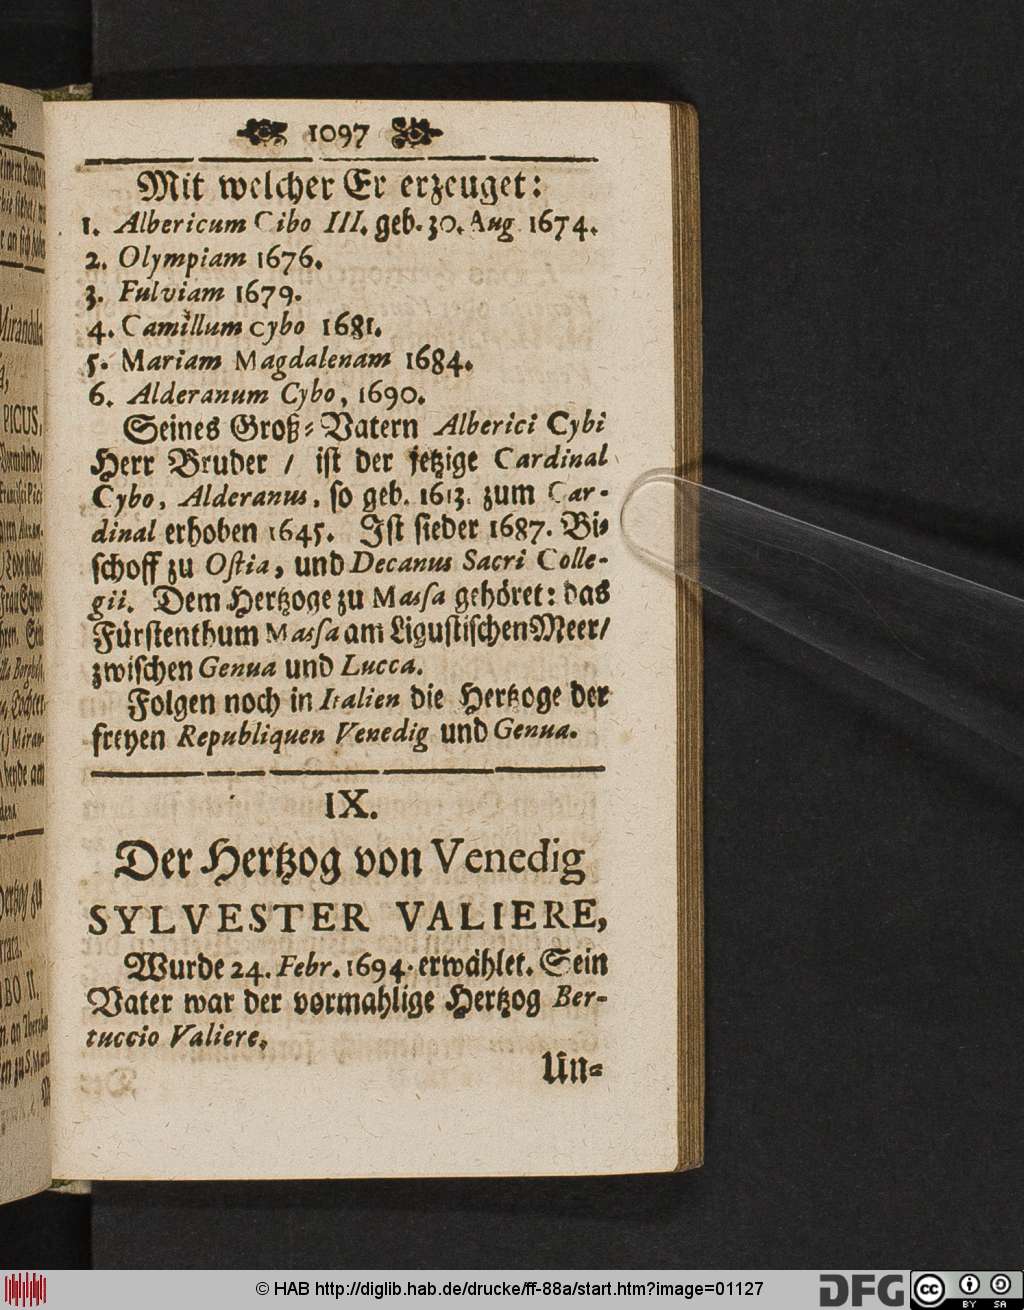 1097
Mit welcher Er erzeuget:
1. Albericum Cibo III. geb. 30. Aug 1674.
2. Olympiam 1676.
3. Fulviam 1679.
4. Camillum cybo 1681.
5. Mariam Magdalenam 1684.
6. Alderanum Cybo, 1690.
Seines Groß-Vatern Alberici Cybi
Herr Bruder / ist der jetzige Cardinal
Cybo, Alderanus, so geb. 1613. zum Car-
dinal erhoben 1645. Ist sieder 1687. Bi-
schoff zu Ostia, und Decanus Sacri Colle-
gii. Dem Hertzoge zu Massa gehöret: das
Fürstenthum Massa am Ligustischen Meer/
zwischen Genua und Lucca.
Folgen noch in Italien die Hertzoge der
freyen Republiquen Venedig und Genua.
IX.
Der Hertzog von Venedig
SYLVESTER VALIERE,
Wurde 24. Febr. 1694. erwählet. Sein
Vater war der vormahlige Hertzog Ber-
tuccio Valiere.
Un-
PICUS,
© HAB http://diglib.hab.de/drucke/ff-88a/start.htm?image=01127
DFG
cc BY SA